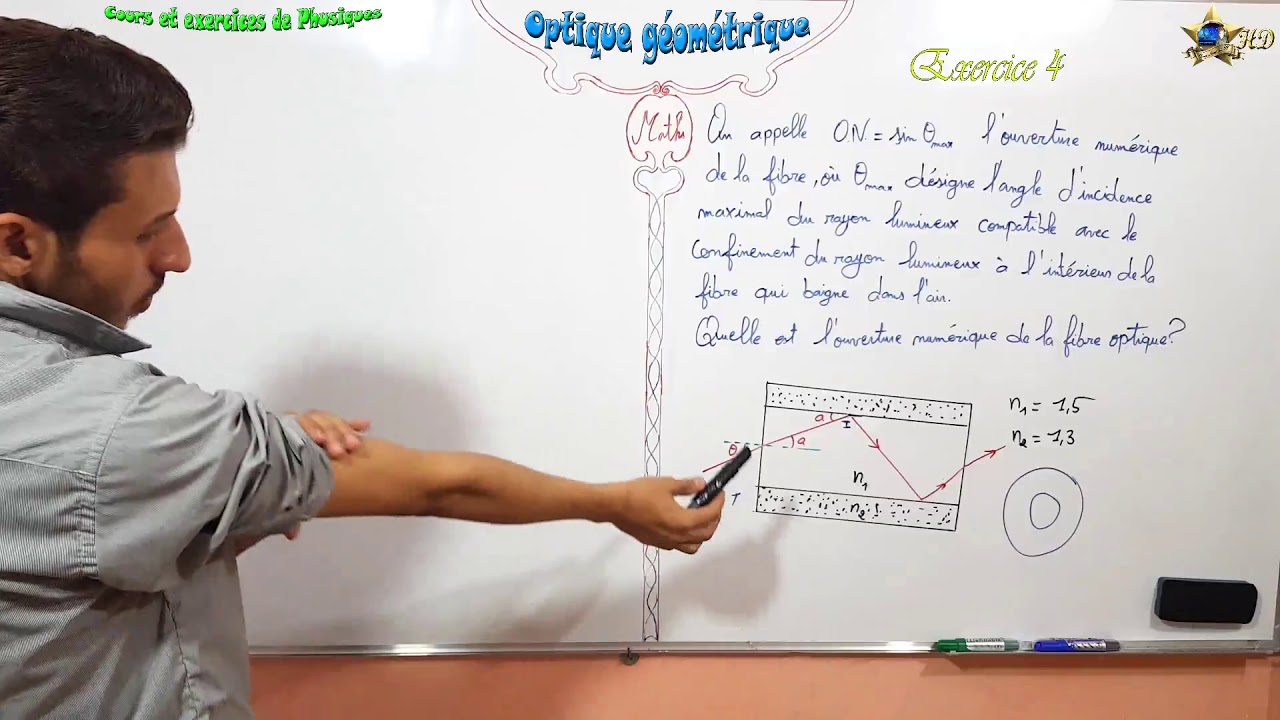 Cours et exercices de Physiques
Optique géométrique
HD
Exercice 4
Maths
On appelle O.N. = sin θmax l'ouverture numérique
de la fibre, où θmax désigne l'angle d'incidence
maximal du rayon lumineux compatible avec le
confinement du rayon lumineux à l'intérieur de la
fibre qui baigne dans l'air.
Quelle est l'ouverture numérique de la fibre optique?
n1 = 1,5
n2 = 1,3
a
I
θ
a
n1
n2